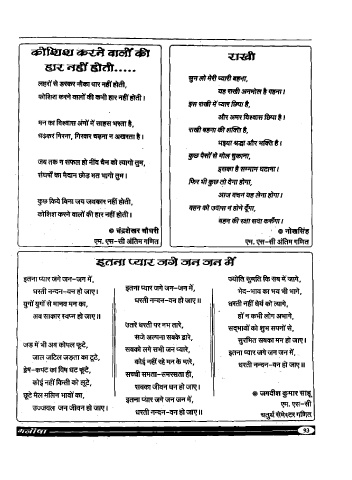 कोशिश करने वालों की
हार नहीं होती.....
लहरों से डरकर नौका पार नहीं होती,
कोशिश करने वालों की कभी हार नहीं होती।
मन का विश्वास अंगों में साहस भरता है,
चढ़कर गिरना, गिरकर चढ़ना न अखरता है।
जब तक न सफल हो नींद चैन को त्यागो तुम,
संघर्षों का मैदान छोड़ मत भागो तुम।
कुछ किये बिना जय जयकार नहीं होती,
कोशिश करने वालों की हार नहीं होती।
चंद्रशेखर चौधरी
एम. एस-सी अंतिम गणित
राखी
सुन लो मेरी प्यारी बहना,
यह राखी अनमोल है गहना।
इस राखी में प्यार छिपा है,
और अमर विश्वास छिपा है।
राखी बहना की शक्ति है,
भइया श्रद्धा और भक्ति है।
कुछ पैसों से मोल चुकाना,
इसका है सम्मान घटाना।
फिर भी कुछ तो देना होगा,
आज वचन यह लेना होगा।
बहन को उदास न होने दूँगा,
बहन की रक्षा सदा करूँगा।
नोखसिंह
एम. एस-सी अंतिम गणित
इतना प्यार जगे जन जन में
इतना प्यार जगे जन-जन में,
धरती नन्दन-वन हो जाए।
युगों युगों से मानव मन का,
अब साकार स्वप्न हो जाए।
जड़ में भी अब कोपल फूटे,
जाल जटिल जड़ता का टूटे,
द्वेष-कपट का विष घट फूटे,
कोई नहीं किसी को लूटे,
छूटे मैल मलिन भावों का,
उज्जवल जन जीवन हो जाए।
इतना प्यार जगे जन-जन में,
धरती नन्दन-वन हो जाए॥
उतरे धरती पर नभ तारे,
सजे अल्पना सबके द्वारे,
सबको लगे सभी जन प्यारे,
कोई नहीं रहे मन के मारे,
सच्ची समता-समरसता ही,
सबका जीवन धन हो जाए।
इतना प्यार जगे जन जन में,
धरती नन्दन-वन हो जाए॥
ज्योति सुमति कि सब में जागे,
भेद-भाव का भय भी भागे,
धरती नहीं धैर्य को त्यागे,
हों न कभी लोग अभागे,
सद्भावों को शुभ सपनों से,
सुरभित सबका मन हो जाए।
इतना प्यार जगे जग जन में,
धरती नन्दन-वन हो जाए॥
जगदीश कुमार साहू
एम. एस-सी
चतुर्थ सेमेस्टर गणित
मनीषा
93